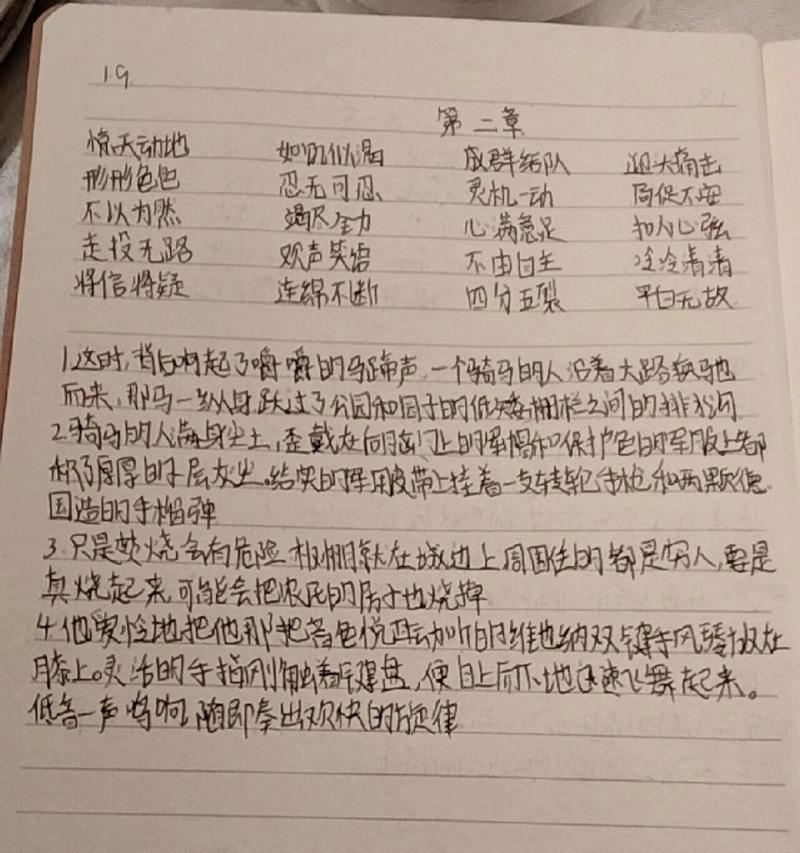 1.9
第二章
惊天动地 如饥似渴 成群结队 迎头痛击
形形色色 忍无可忍 灵机一动 局促不安
不以为然 竭尽全力 心满意足 扣人心弦
走投无路 欢声笑语 不由自主 冷冷清清
将信将疑 连绵不断 四分五裂 平白无故
1.这时,背后响起了嚼嚼的马蹄声,一个骑马的人沿着大路驰
而来,那马一纵身跃过了公园和园子的低矮栅栏之间的排水沟
2.骑马的人满身尘土,歪戴在问的军帽和保护色的军服上都
了厚厚的一层灰尘。结实的军用皮带上挂着一支转轮手枪和两颗德
国造的手榴弹
3.只是焚烧会有危险 板棚就在城边上 周围住的都是穷人,要是
真烧起来 可能会把农民的房子也烧掉
4.他爱怜地把他那把音色悦耳动听的维也纳双键手风琴放在
膝上。灵活的手指刚触着键盘,便自上而下地迅速飞舞起来。
低音一声呜咽,随即奏出欢快的旋律